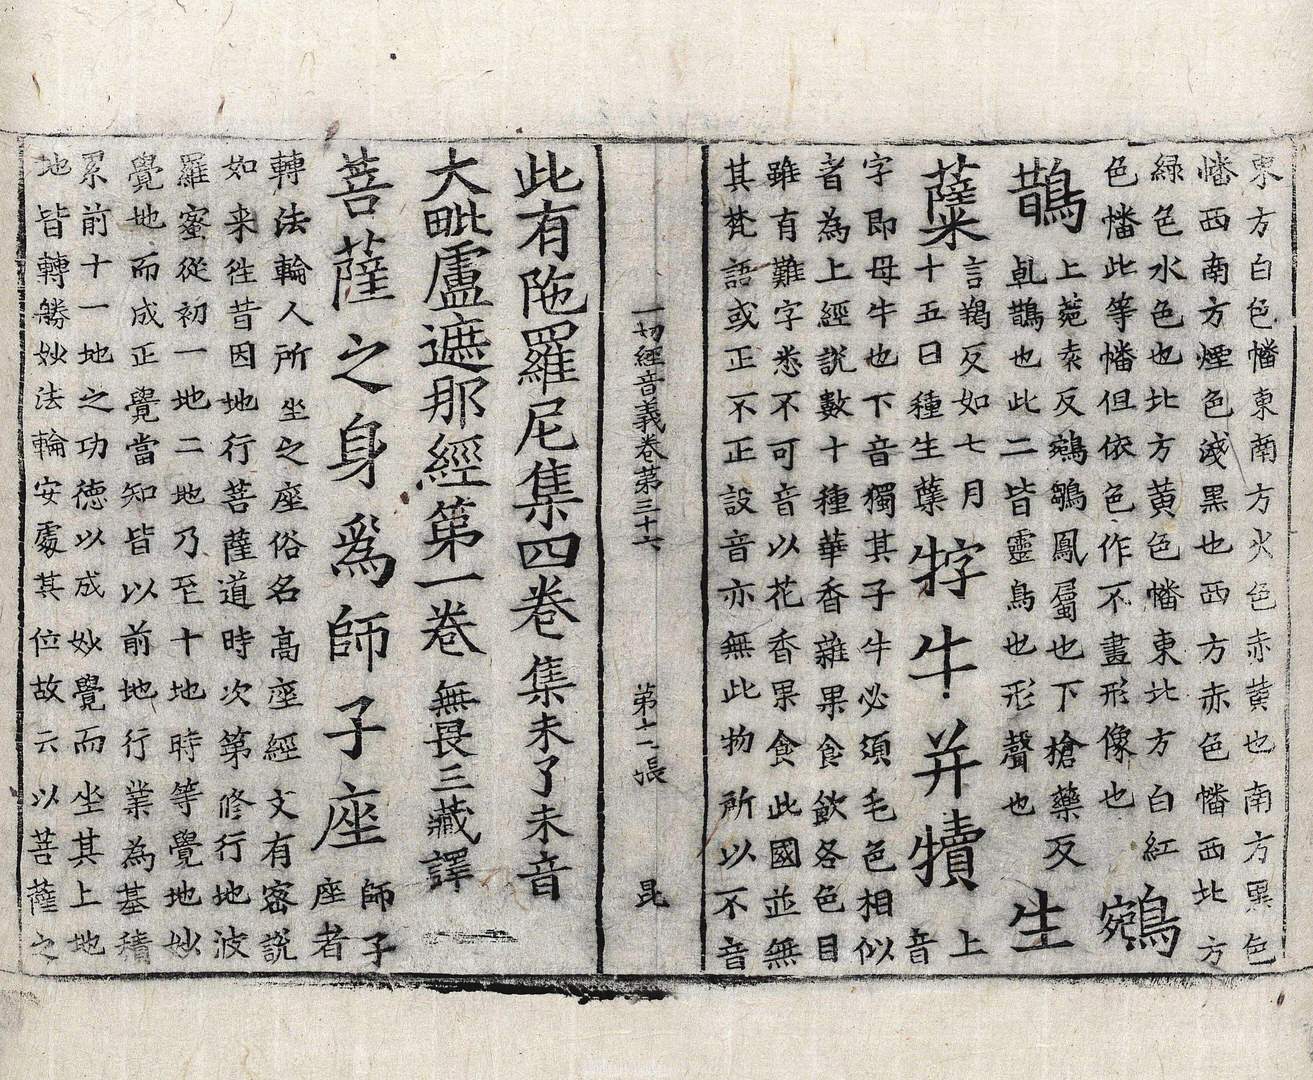 東方白色幡東南方火色赤黄也南方黒色
幡西南方煙色淺黒也西方赤色幡西北方
緑色水色也北方黄色幡東北方白紅
色幡此等幡但依色作不畫形像也鵷
鵲上菀袁反鵷鶵鳳屬也下槍藥反
乹鵲也此二皆靈鳥也形聲也生
蘖言羯反如七月
十五日種生蘖牸牛并犢上
音
字即母牛也下音獨其子牛必須毛色相似
者為上經説數十種華香雜果食飲各色目
雖有難字悉不可音以花香果食此國並無
其梵語或正不正設音亦無此物所以不音
一切經音義卷第三十六 第十一張 昆
此有陁羅尼集四卷集未了未音
大毗盧遮那經第一卷無畏三藏譯
菩薩之身爲師子座師子
座者
轉法輪人所坐之座俗名高座經文有密説
如来徃昔因地行菩薩道時次第修行地波
羅蜜從初一地二地乃至十地時等覺地妙
覺地而成正覺當知皆以前地行業為基積
累前十一地之功德以成妙覺而坐其上地
地皆轉勝妙法輪安處其位故云以菩薩之